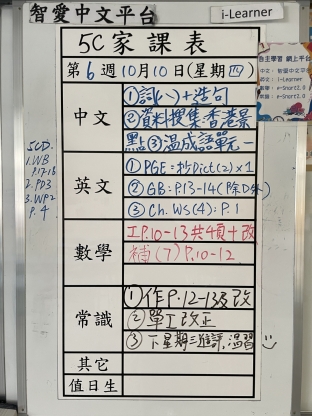 智愛中文平台
i-Learner
5C家課表
第6週10月10日(星期四)
中文
①詞(八)+造句
②資料搜集:香港景
點③温成語單元一
英文
①PGE=抄Dict(2)x1
②GB:P.13-14(除D外)
③Ch.WS(4):P.1
數學
工P.10-13共4頁+改
補(7)P.10-12
常識
①作P.12-13及改
②單工改正
③下星期三進評,溫習
其它
值日生
5CD.
1.WB
P.17-18
2.PD3
3.WP2
P.4
自主學習 網上平台
中文:智愛中文平台